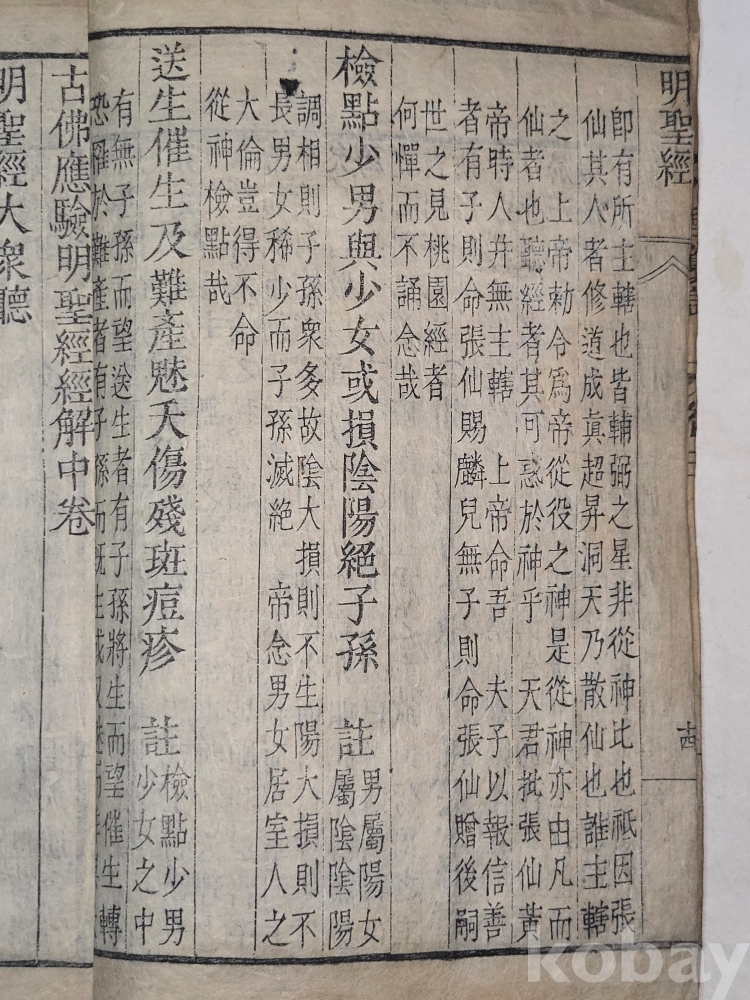 明聖經
即有所主轄也皆輔弼之星非從神比也祗因張
仙其人者修道成眞超昇洞天乃散仙也誰主轄
之 上帝勅令爲帝從役之神是從神亦由凡而
仙者也聽經者其可惑於神乎 天君批張仙黃
帝時人幷無主轄 上帝命吾 夫子以報信善
者有子則命張仙賜麟兒無子則命張仙贈後嗣
世之見桃園經者
何憚而不誦念哉
檢點少男與少女或損陰陽絕子孫 註 男屬陽女
屬陰陰陽
調相則子孫衆多故陰大損則不生陽大損則不
長男女稀少而子孫滅絕 帝念男女居室人之
大倫豈得不命
從神檢點哉
送生催生及難產魃夭傷殘斑痘疹 註 檢點少男
少女之中
有無子孫而望送生者有子孫將生而望催生轉
恐罹於難產者有子孫而既生或
古佛應驗明聖經經解中卷
明聖經大衆聽
kobay